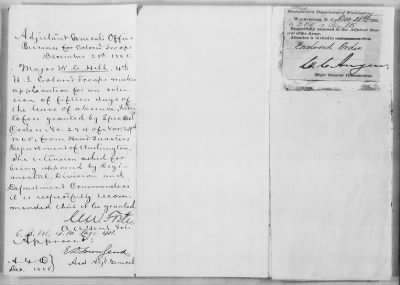 Adjutant General's Office
Bureau for Colored Troops
December 28th 1865.
Major W. C. Hill, 4th
U.S. Colored Troops makes
application for an exten-
sion of fifteen days of the
leave of absence
granted by Special
Orders No.
1865, from Head Quarters
Department of Washington.
The extension asked for
being approved by Regi-
mental, Division and
Department Commanders
it is respectfully recom-
mended that it be granted
C W Foster
Approved:
E D Townsend
Asst Adjt General
A. G. O.
Dec. 1865
Headquarters Department of Washington,
Washington, D.C., Dec. 1865
Respectfully returned to the Adjutant Gen-
eral of the Army.
Attention is invited to
Enclosed Order
C. C. Augur
Major General Commanding.